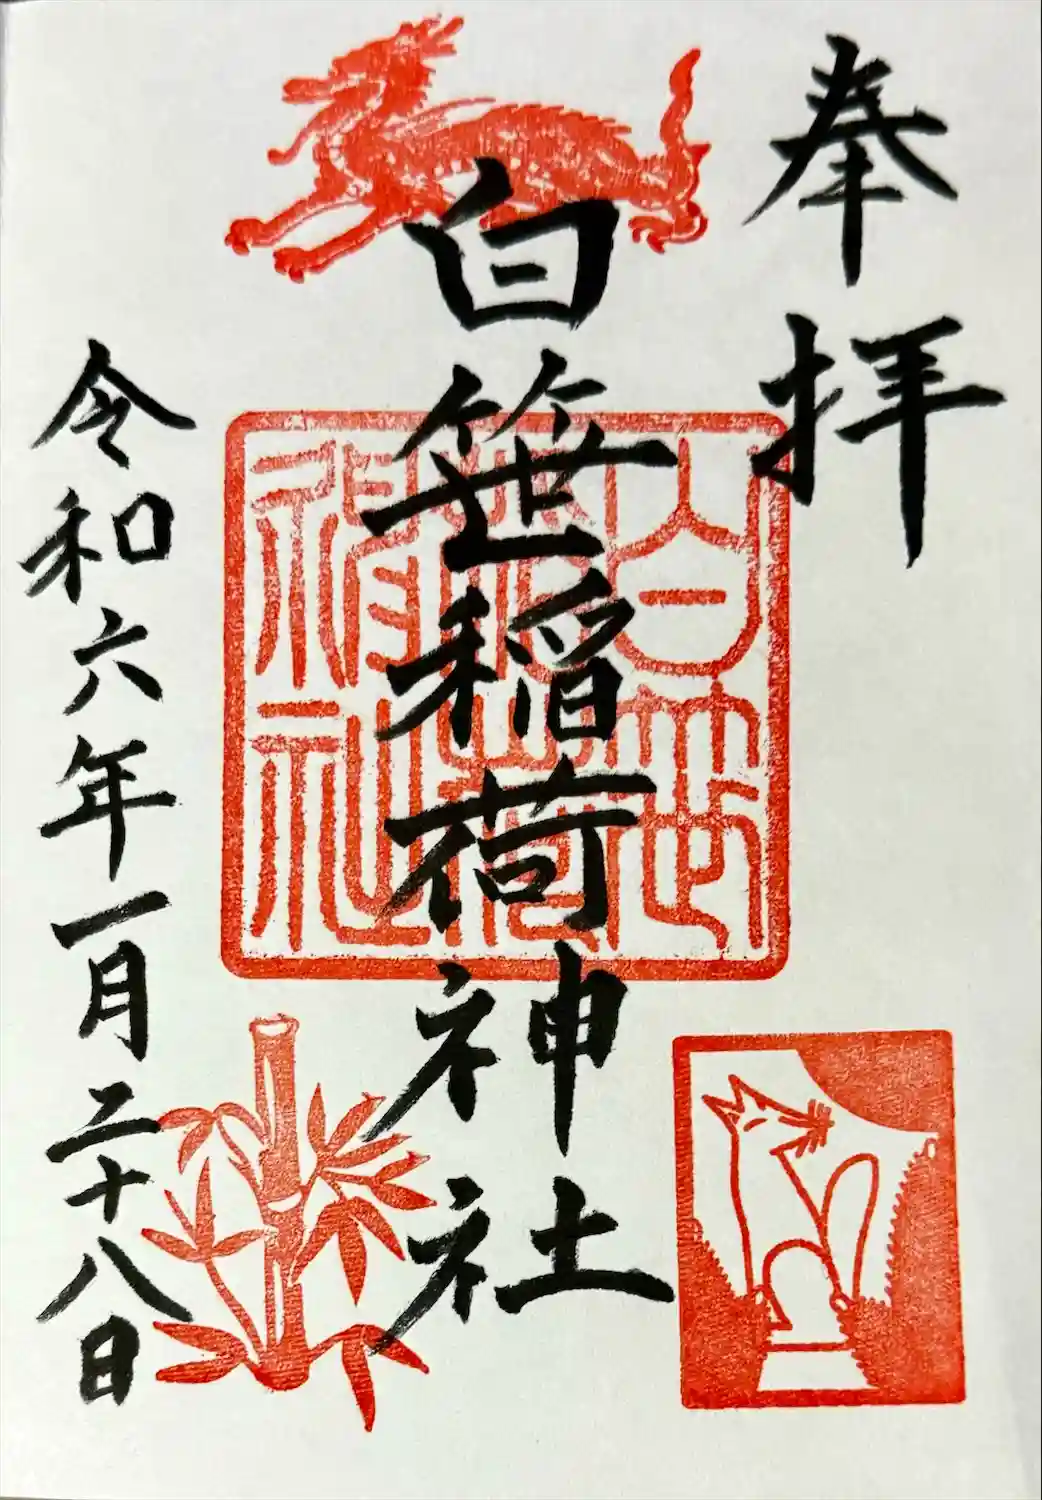 奉拝
白笹稲荷神社
白笹稲荷神社
令和六年一月二十八日